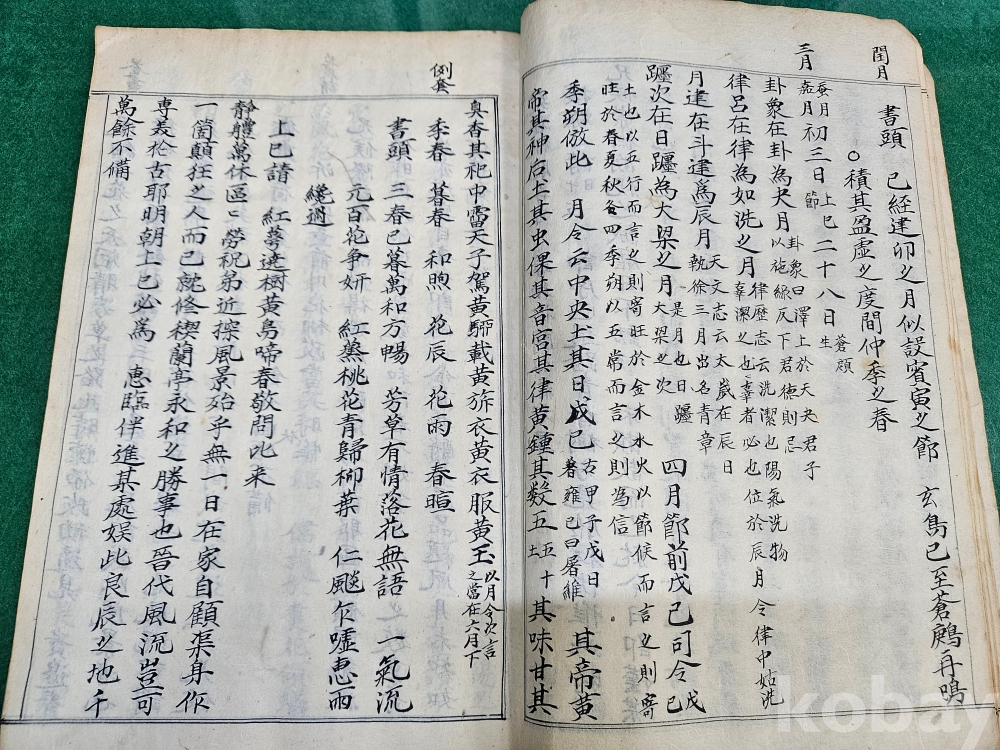 閏月
書頭 已經建卯之月似誤賓寅之節 玄鳥已至蒼鷹再鳴
○積其盈虛之度間仲季之春
三月
每月
嘉月
初三日
上巳
節
二十八日
蒼頡
生
卦象在卦為夬月
卦象曰澤上於天夬君子
以施綠反下君德則忌
律呂在律為如洗之月
律歷志云洗潔也陽氣洗物
辜潔之也辜者必也位於辰月令律中姑洗
月建在斗建爲辰月
天文志云太歲在辰日
執徐三月出名青章
躔次在日躔為大梁之月
是月也日躔
大梁之次
四月節前戊己司令
戊
己
土也以五行而言之則寄旺於金木水火以節候而言之則寄
旺於春夏秋各四季朔以五常而言之則為信
季朔倣此 月令云中央土其日戊己
古甲子戊日
著雍己曰屠維
其帝黃
帝其神后土其虫倮其音宮其律黃鍾其数五
土
五
十其味甘其
例套
真香其祀中雷天子駕黃騮載黃旂衣黃衣服黃玉
以月令次言
之當在六月下
季春 暮春 和煦 花辰 花雨 春暄
書頭 三春已暮萬和方暢 芳草有情落花無語 一氣流
元百花争妍 紅蒸桃花青歸柳葉 仁颸乍噓惠雨
纔過
上巳請 紅萼遶樹黃鳥啼春敬問比来
靜體萬休區〻勞祝弟近探風景殆乎無一日在家自顧渠身作
一箇顛狂之人而已就修禊蘭亭永和之勝事也晉代風流豈可
専美於古耶明朝上巳必爲 惠臨伴進某處娱此良辰之地千
萬餘不備
kobay